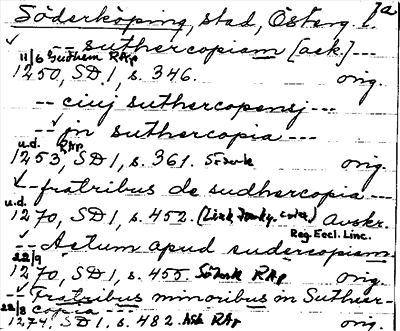 Söderköping, stad, Österg. l. 1a
-- suthercopiam [ack.] ---
11/6 Gudhem RAp
1250, SD 1, s. 346. orig.
-- civj suthercopensj ---
-- jn suthercopia ---
u.d. RAp
1253, SD 1, s. 361. orig.
-- fratribus de sudhercopia ---
u.d.
1270, SD 1, s. 452. Avskr.
Reg. Eccl. Linc.
-- Actum apud sudercopiam.
22/9
1270, SD 1, s. 455. RAp orig.
-- Fratribus minoribus in Suther-
copia ---
22/8
1274, SD 1, s. 482. RAp orig.